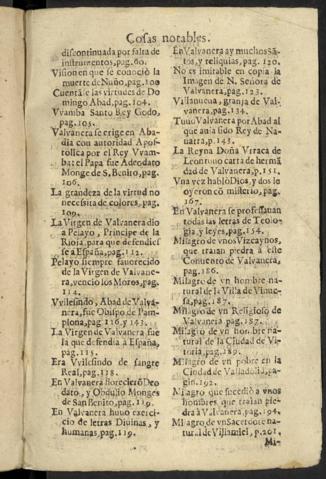 Cosas notables.
discontinuada por falta de
instrumentos, pag.60.
Vision en que se conociò la
muerte de Nuño, pag.100
Cuentase las virtudes de Do
mingo Abad, pag.104.
Vvamba Santo Rey Godo,
pag.105.
Valvanera se erige en Aba-
dia con autoridad Apos-
tolica por el Rey Vvam-
ba: el Papa fue Adeodato
Monge de S. Benito, pag.
106.
La grandeza de la virtud no
necessita de colores, pag.
109.
La Virgen de Valvanera diò
a Pelayo, Principe de la
Rioja, para que defendies
se a España, pag.112.
Pelayo siempre fauorecido
de la Virgen de Valvane-
ra, vencio los Moros, pag.
114.
Vvilesindo, Abad de Valva-
nera, fue Obispo de Pam-
plona, pag.116.y 143.
La Virgen de Valvanera fue
la que defendia à España,
pag.115.
Era Vvilesindo de sangre
Real, pag.118.
En Valvanera florecierō Deo
dato, y Obdulio Monges
de San Benito, pag.119.
En Valvanera huuo exerci-
cio de letras Diuinas, y
humanas, pag.119.
En Valvanera ay muchos Sā-
tos, y reliquias, pag.120.
No es imitable en copia la
Imagen de N. Señora de
Valvanera, pag.123.
Villanueua, granja de Val-
vanera, pag.134.
Tuuo Valvanera por Abad al
que auia sido Rey de Na-
uarra, p.143.
La Reyna Doña Vrraca de
Leon tuuo carta de hermā
dad de Valvanera, p.151.
Vna vez hablò Dios, y dos lo
oyeron cō misterio, pag.
167.
En Valvanera se professauan
todas las letras de Teolo-
gia, y leyes, pag.154.
Milagro de vnos Vizcaynos,
que traian piedra à este
Conuento de Valvanera,
pag.186.
Milagro de vn hombre na-
tural de la Villa de
pag.187.
Milagro de vn Religioso de
Valvanera pag.187.
Milagro de vn hombre na-
tural de la Ciudad de Vi-
toria, pag.189.
Milagro de vn pobre en la
Ciudad de Valladolid, pa-
gin.192.
Milagro que sucediò a vnos
hombres, que traian pie-
dra à Valvanera, pag.194.
Milagro de vn Sacerdote na-
tural de p.201.
Mi-